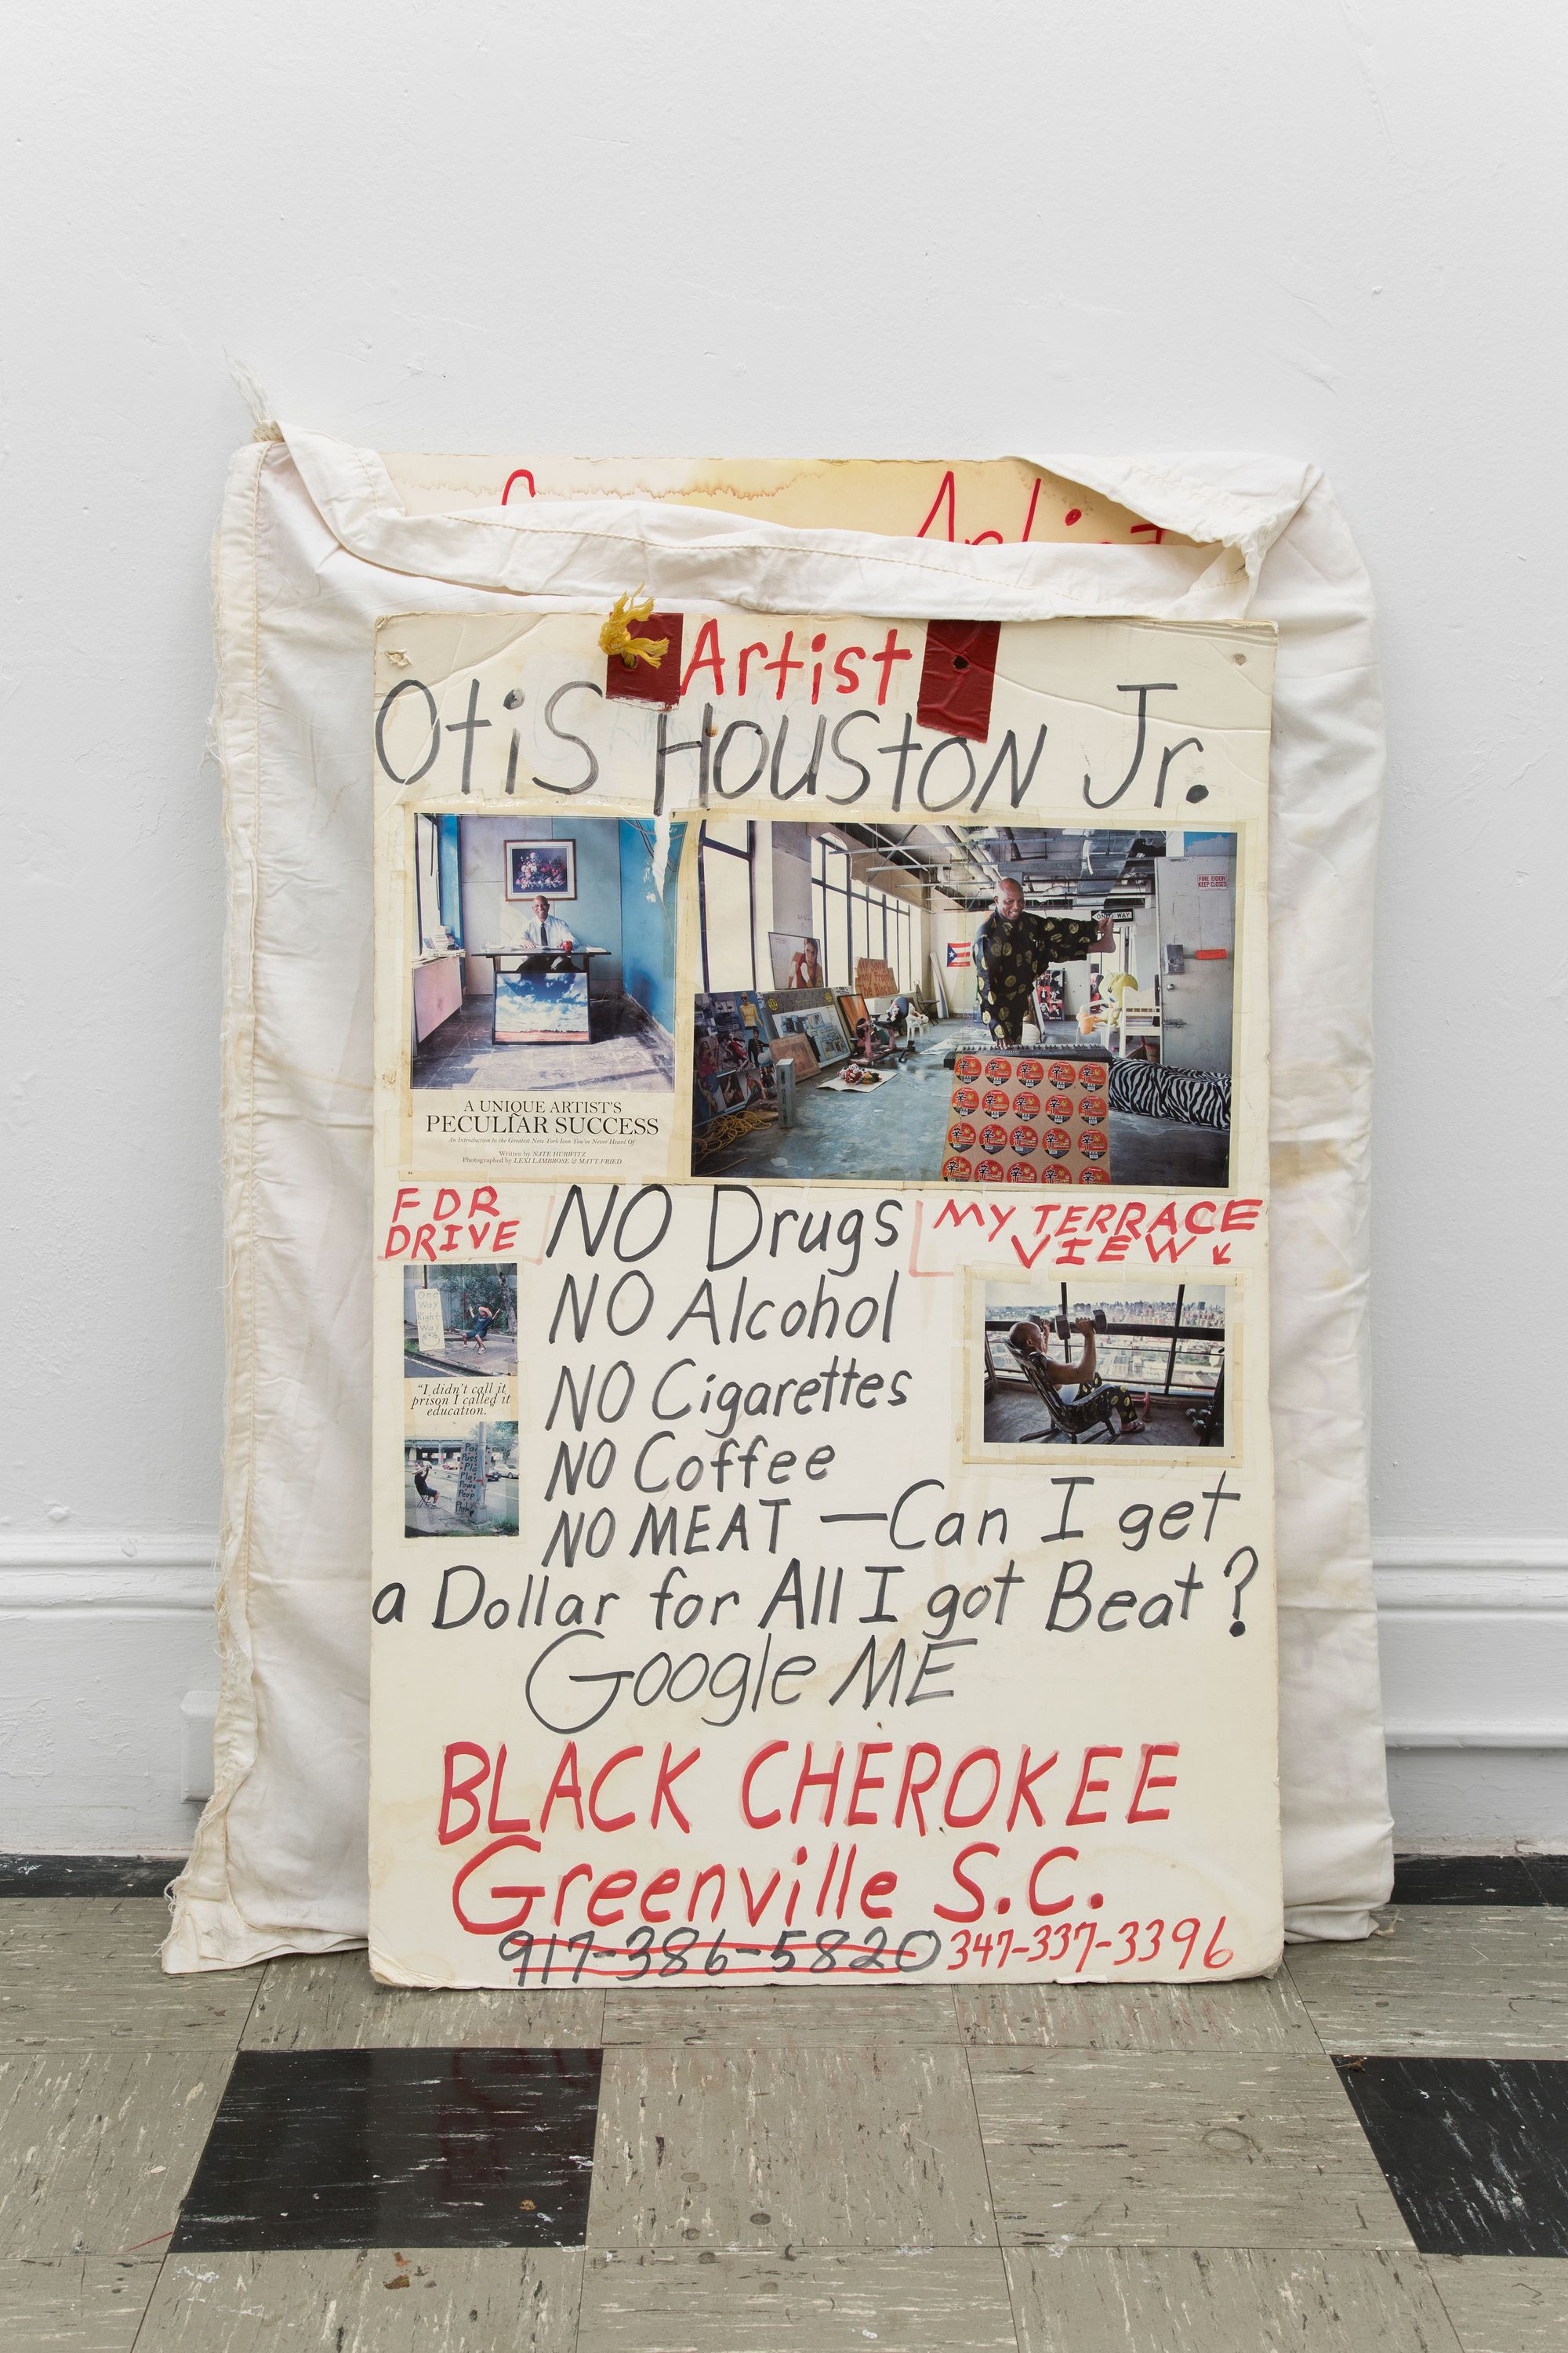 Artist
Artist
Otis Houston Jr.
FIRE DOOR
KEEP CLOSED
ONE WAY
A UNIQUE ARTIST'S
PECULIAR SUCCESS
An Introduction to the Greatest New York Icon You've Never Heard Of
Written by NATE HURWITZ
Photographed by LEXI LAMBROSE & MATT FRIED
FDR
DRIVE
NO Drugs
MY TERRACE
VIEW
NO Alcohol
One
Way
Right
Way
"I didn't call it
prison I called it
education.
NO Cigarettes
NO Coffee
NO MEAT — Can I get
a Dollar for All I got Beat?
Google ME
BLACK CHEROKEE
Greenville S.C.
917-386-5820 347-337-3396